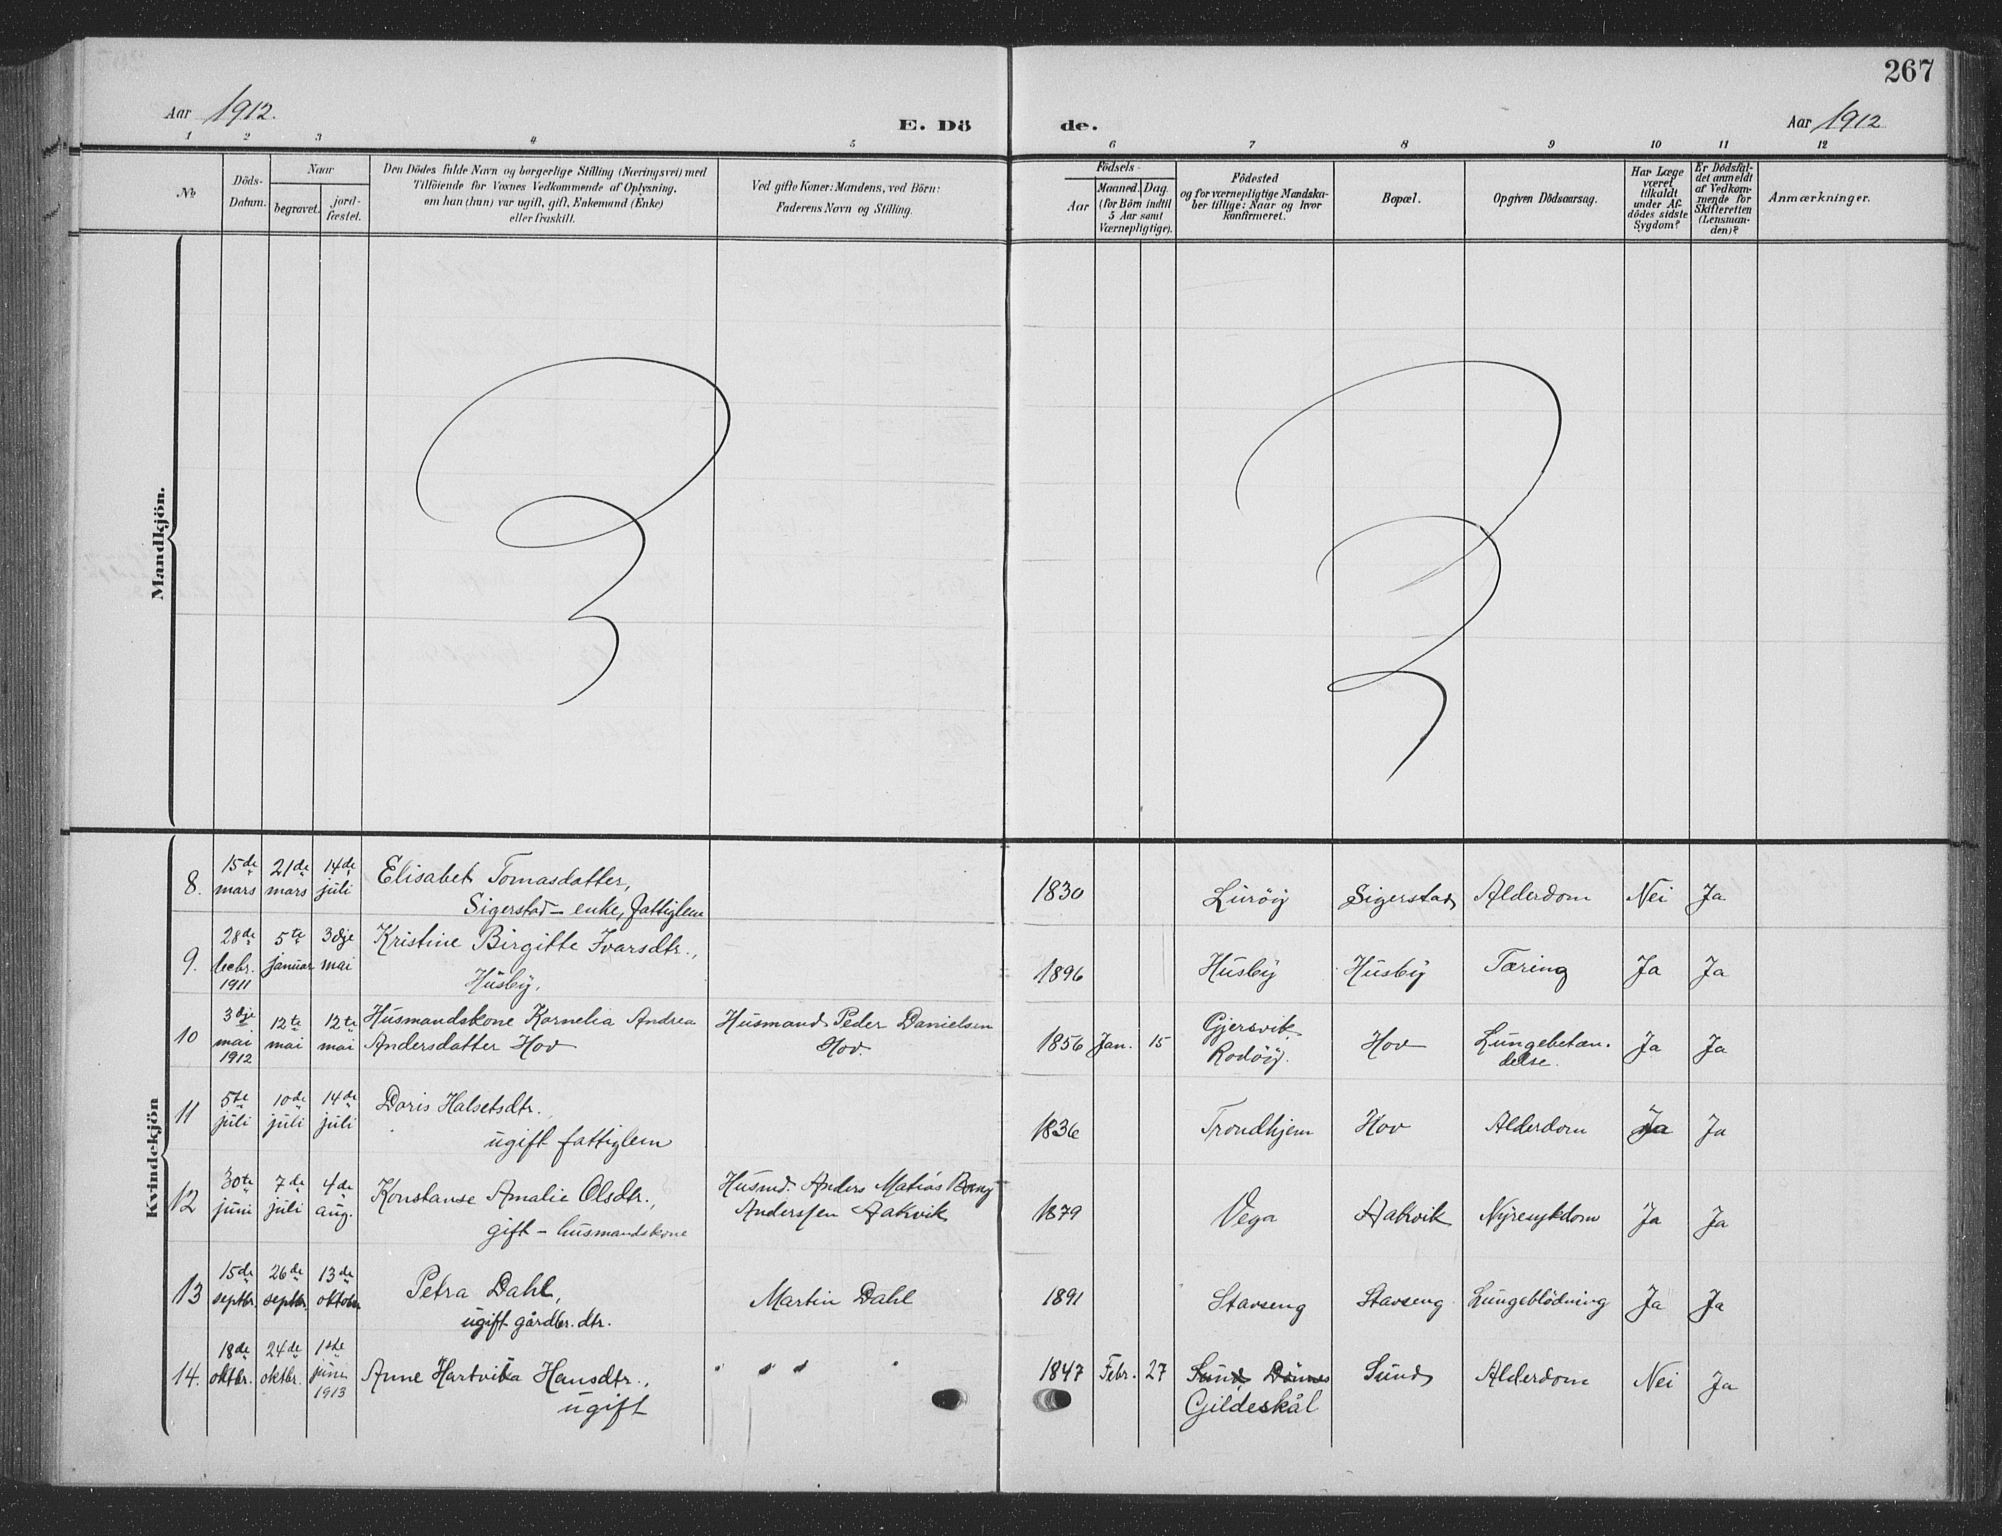 267
Aar 1912.
E. Dö
de.
Aar 1912
1 2 3 4 5 6 7 8 9 10 11 12
No
Döds-
Datum.
Naar
begravet.
jord-
fæstet.
Den Dödes fulde Navn og borgerlige Stilling (Næringsvei) med
Tilföiende for Voxnes Vedkommende af Oplysning,
om han (hun) var ugift, gift, Enkemand (Enke)
eller fraskilt.
Ved gifte Koner: Mandens, ved Börn:
Faderens Navn og Stilling.
Födsels-
Aar
Maaned. Dag.
(for Börn indtil
5 Aar samt
Værnepligtige).
Födested
og for værnepligtige Mandska-
ber tillige: Naar og hvor
konfirmeret.
Bopæl.
Opgiven Dödsaarsag.
Har Læge
været
tilkaldt
under Af-
dödes sidste
Sygdom?
Er Dödsfal-
det anmeldt
af Vedkom-
mende for
Skifteretten
(Lensman-
den)?
Anmærkninger.
Mandkjön.
Kvindekjön
8. 15de mars 21de mars 14de juli Elisabet Tomasdatter,
Sigerstad - enke, fattiglem
1830 Luröy Sigerstad Alderdom Nei Ja
9. 28de 1911 5te januar 3dje mai Kristine Birgitte Ivarsdtr.,
Husby.
1896 Husby Husby Tæring Ja Ja
10 3dje mai 1912 12te mai 12te mai Husmandskone Kornelia Andrea
Andersdatter Hov
Husmand Peder Danielsen
Hov.
1856 Jan. 15 Gjersvik
Rodöy. Hov Lungebetæn-
delse. Ja Ja
11 5te juli 10de juli 14de juli Doris Halsetsdtr.
ugift fattiglem
1836 Trondhjem Hov Alderdom Ja Ja
12 30te juni 7de juli 4de aug. Konstanse Amalie Olsdtr.,
gift - husmandskone
Husmd. Anders Matias Bang
Anderssen Aakvik
1879 Vega Aakvik Nyresykdom Ja Ja
13 15de septbr. 26de septbr. 13de oktober Petra Dahl,
ugift gårdbr. dtr.
Martin Dahl
1891 Stavseng Stavseng Lungeblödning Ja Ja
14. 18de oktbr. 24de oktbr. 1ste juni 1913 Anne Hartvika Hansdtr.,
ugift
1847 Febr. 27 Sund, Dönnes
Gildeskål Sund Alderdom Nei Ja